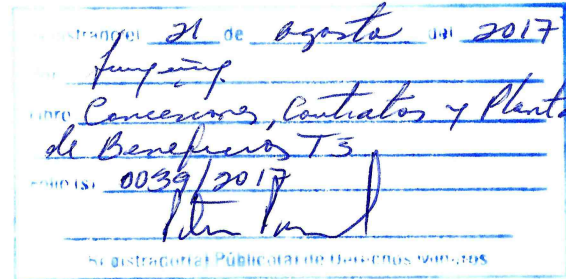 21 de agosto del 2017
Concesiones, Contratos y Planta
de Beneficios T3
Folio(s) 0039/2017
Registrador(a) Público(a) de Derechos Mineros